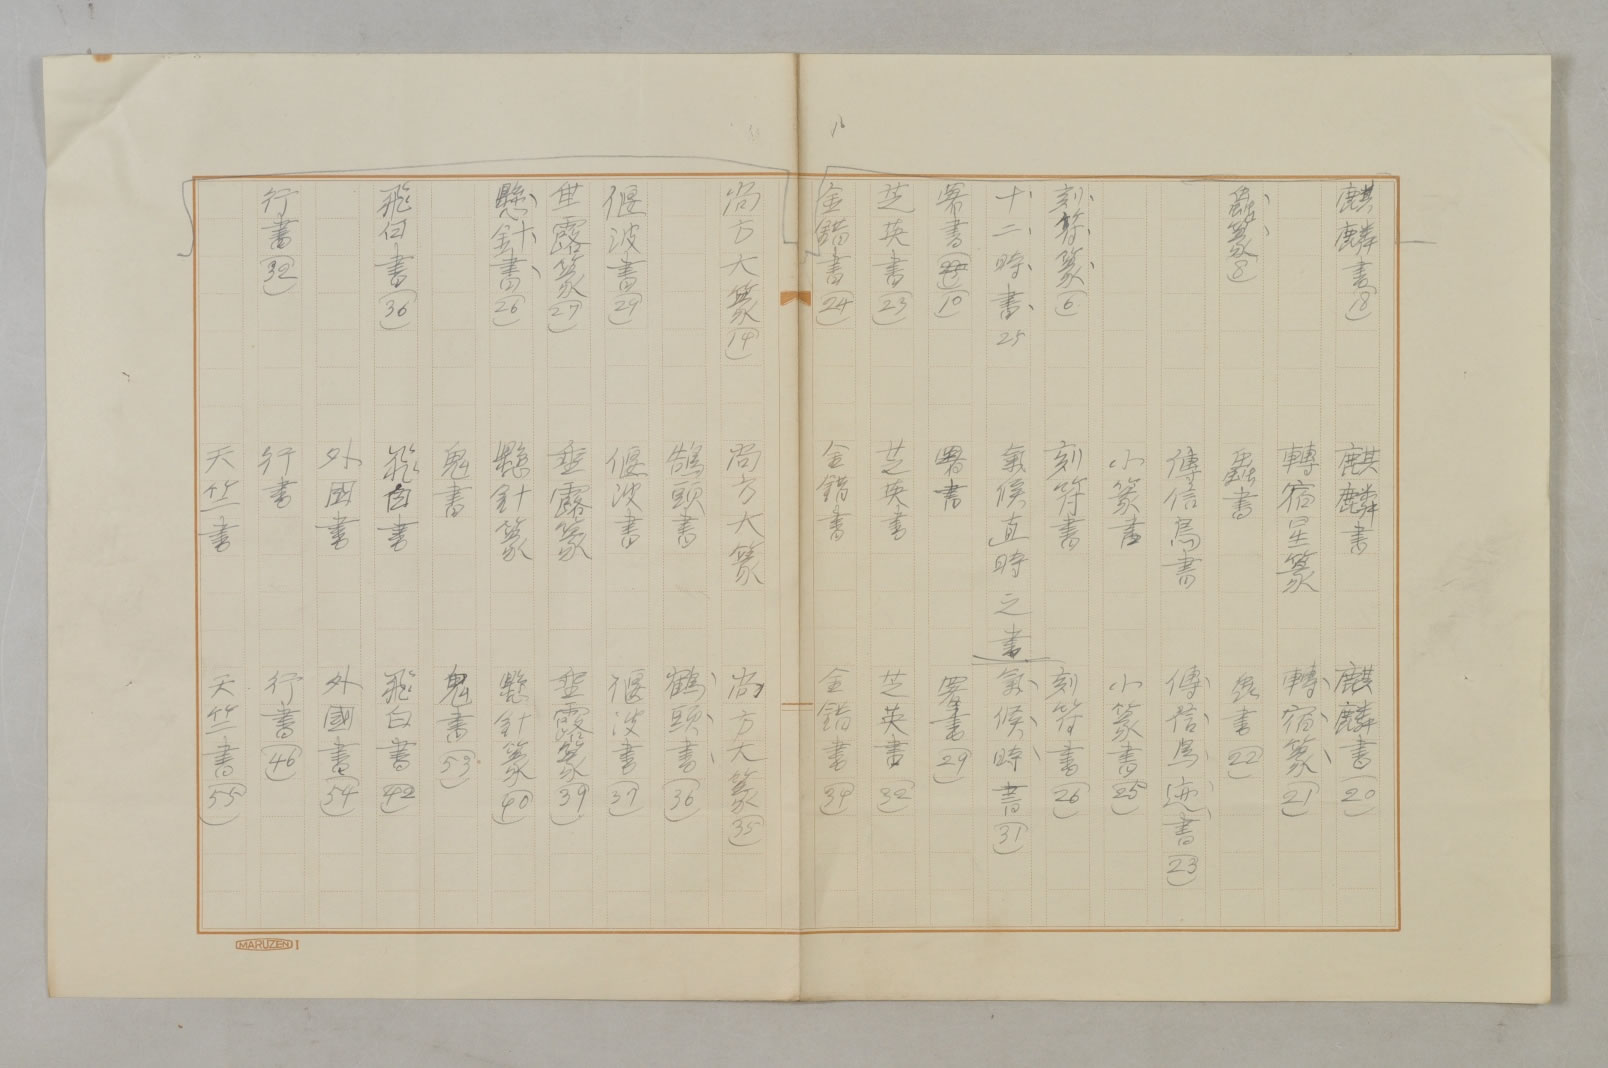 麒麟書(18)　麒麟書　麒麟書(20)
轉宿星篆　轉宿篆(21)
蟲篆8　蟲書　蟲書(22)
傳信鳥書　傳信鳥迹書(23)
小篆書　小篆書(25)
刻符篆(6)　刻符書　刻符書(26)
十二時書25　氣候直時之書　氣候時書(31)
署書(10)　署書　署書(29)
芝英書(23)　芝英書　芝英書(32)
金錯書(24)　金錯書　金錯書(34)
尚方大篆(14)　尚方大篆　尚方大篆(35)
鵠頭書　鶴頭書(36)
偃波書(29)　偃波書　偃波書(37)
垂露篆(27)　垂露篆　垂露篆(39)
懸針書(26)　懸針篆　懸針篆(40)
鬼書　鬼書(53)
飛白書(36)　飛白書　飛白書(42)
外國書　外國書(54)
行書(32)　行書　行書(46)
天竺書　天竺書(55)
MARUZEN I